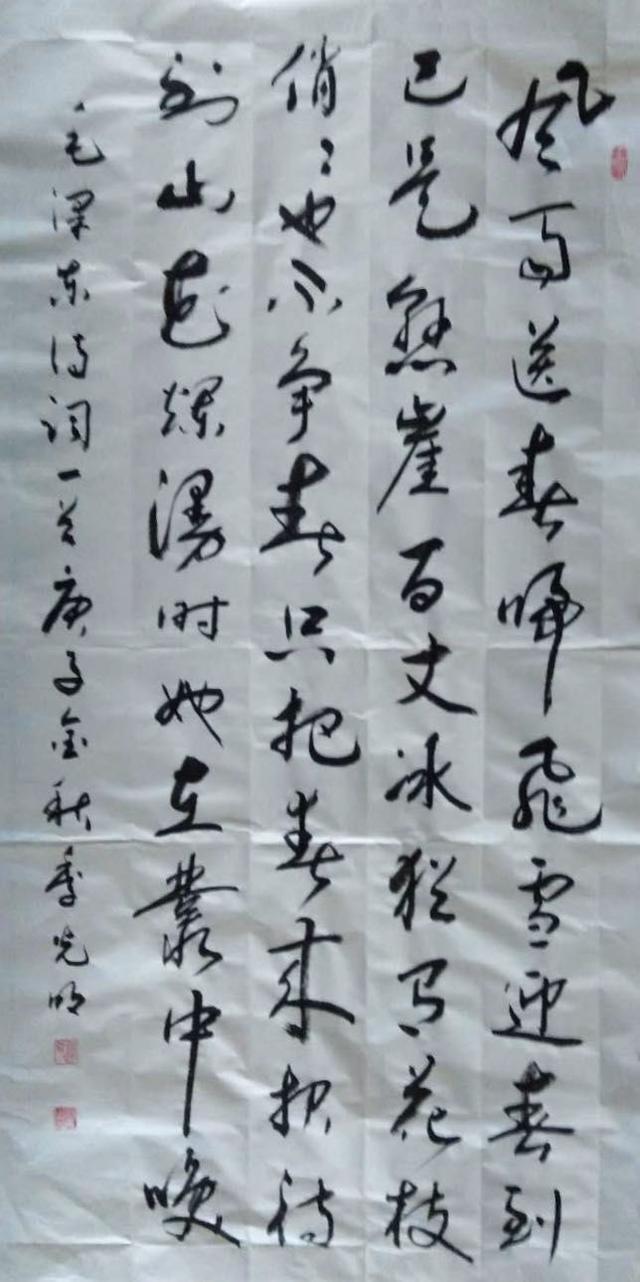 风雨送春归飛雪迎春到
已是悬崖百丈冰犹有花枝
俏〻也不争春只把春来报待
到山花烂漫时她在叢中咲
毛泽东诗词一首庚子金秋季光明